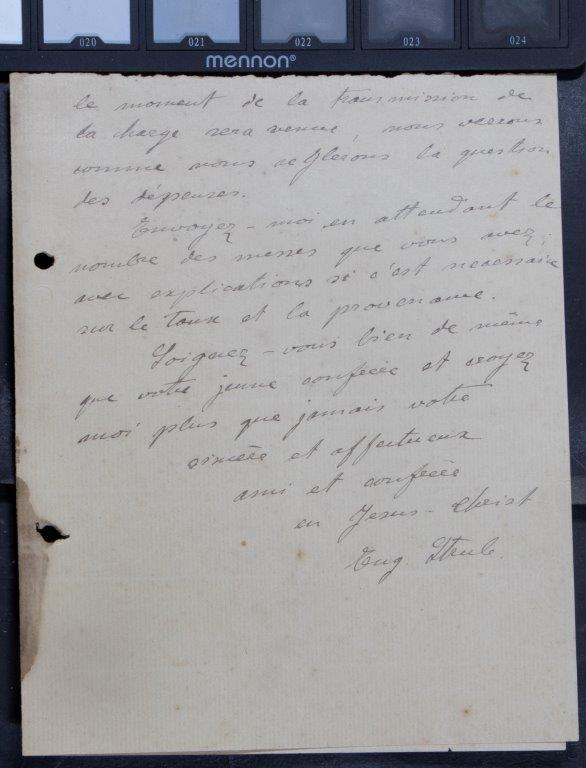 020 021 022 023 024
mennon®
le moment de la transmission de
la charge sera venue, nous verrons
comme nous reglerons la question
des dépenses.
Envoyez-moi en attendant le
nombre des messes que vous avez,
avec explications si c'est necessaire
sur le taux et la provenance.
Soignez-vous bien de même
que votre jeune confrère et croyez
moi plus que jamais votre
sincère et affectueux
ami et confrère
en Jesus-Christ
Eug.